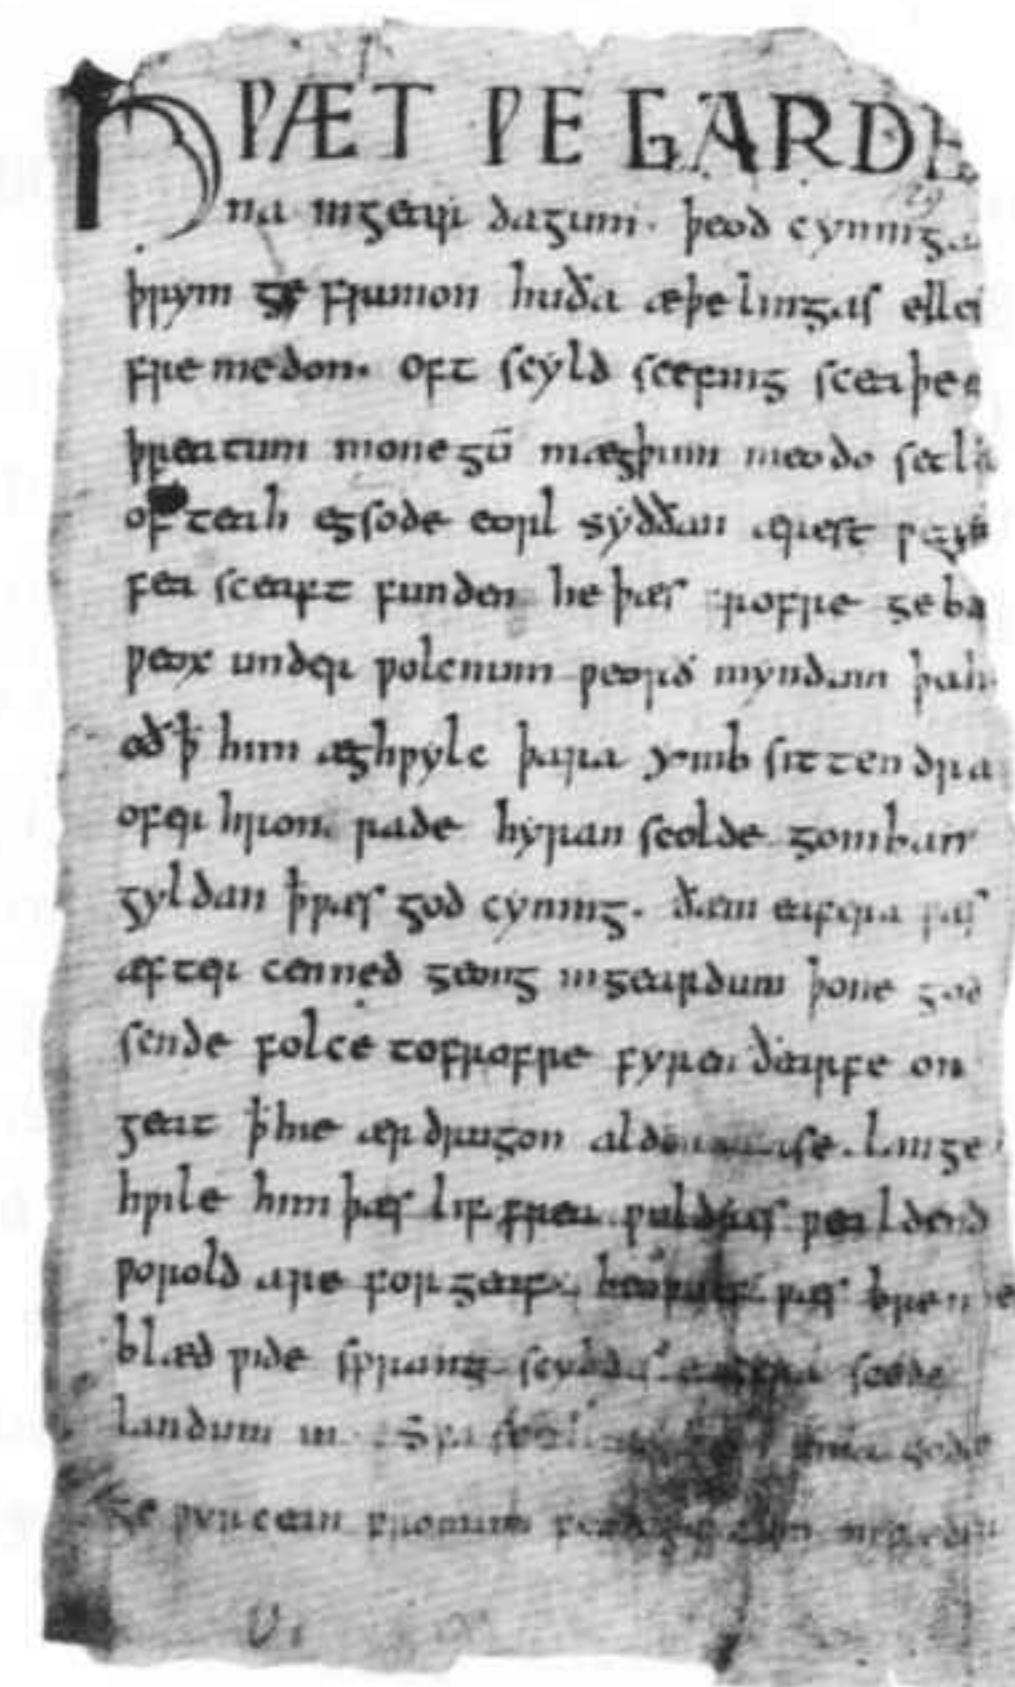 HǷÆT ǷE GARDE
na ingear dagum. þeod cyninga
þrym ge frunon huða æþelingas ellen
fremedon. oft scyld scefing sceaþen
þreatum monegū mægþum meodo setla
of teah egsode eorl syððan ærest ƿearð
fea sceaft funden he þæs frofre geba
ƿeox under ƿolcnum ƿeorð myndum þah
oð ꝥ him æghƿylc þara ymb sittendra
ofer hron rade hyran scolde gomban
gyldan ꝥ ƿæs god cyning. ðæm eafera ƿæs
æfter cenned geong ingeardum þone god
sende folce tofrofre fyren ðearfe on
geat ꝥ hie ær drugon aldor ase. lange
hƿile him þæs lif frea ƿuldres ƿealdend
ƿorold are for geaf. beoƿulf ƿæs breme
blæd ƿide sprang scyldes eafera scede
landum in. Sƿa sceal guma gode
ge ƿyrcean fromum feoh giftum